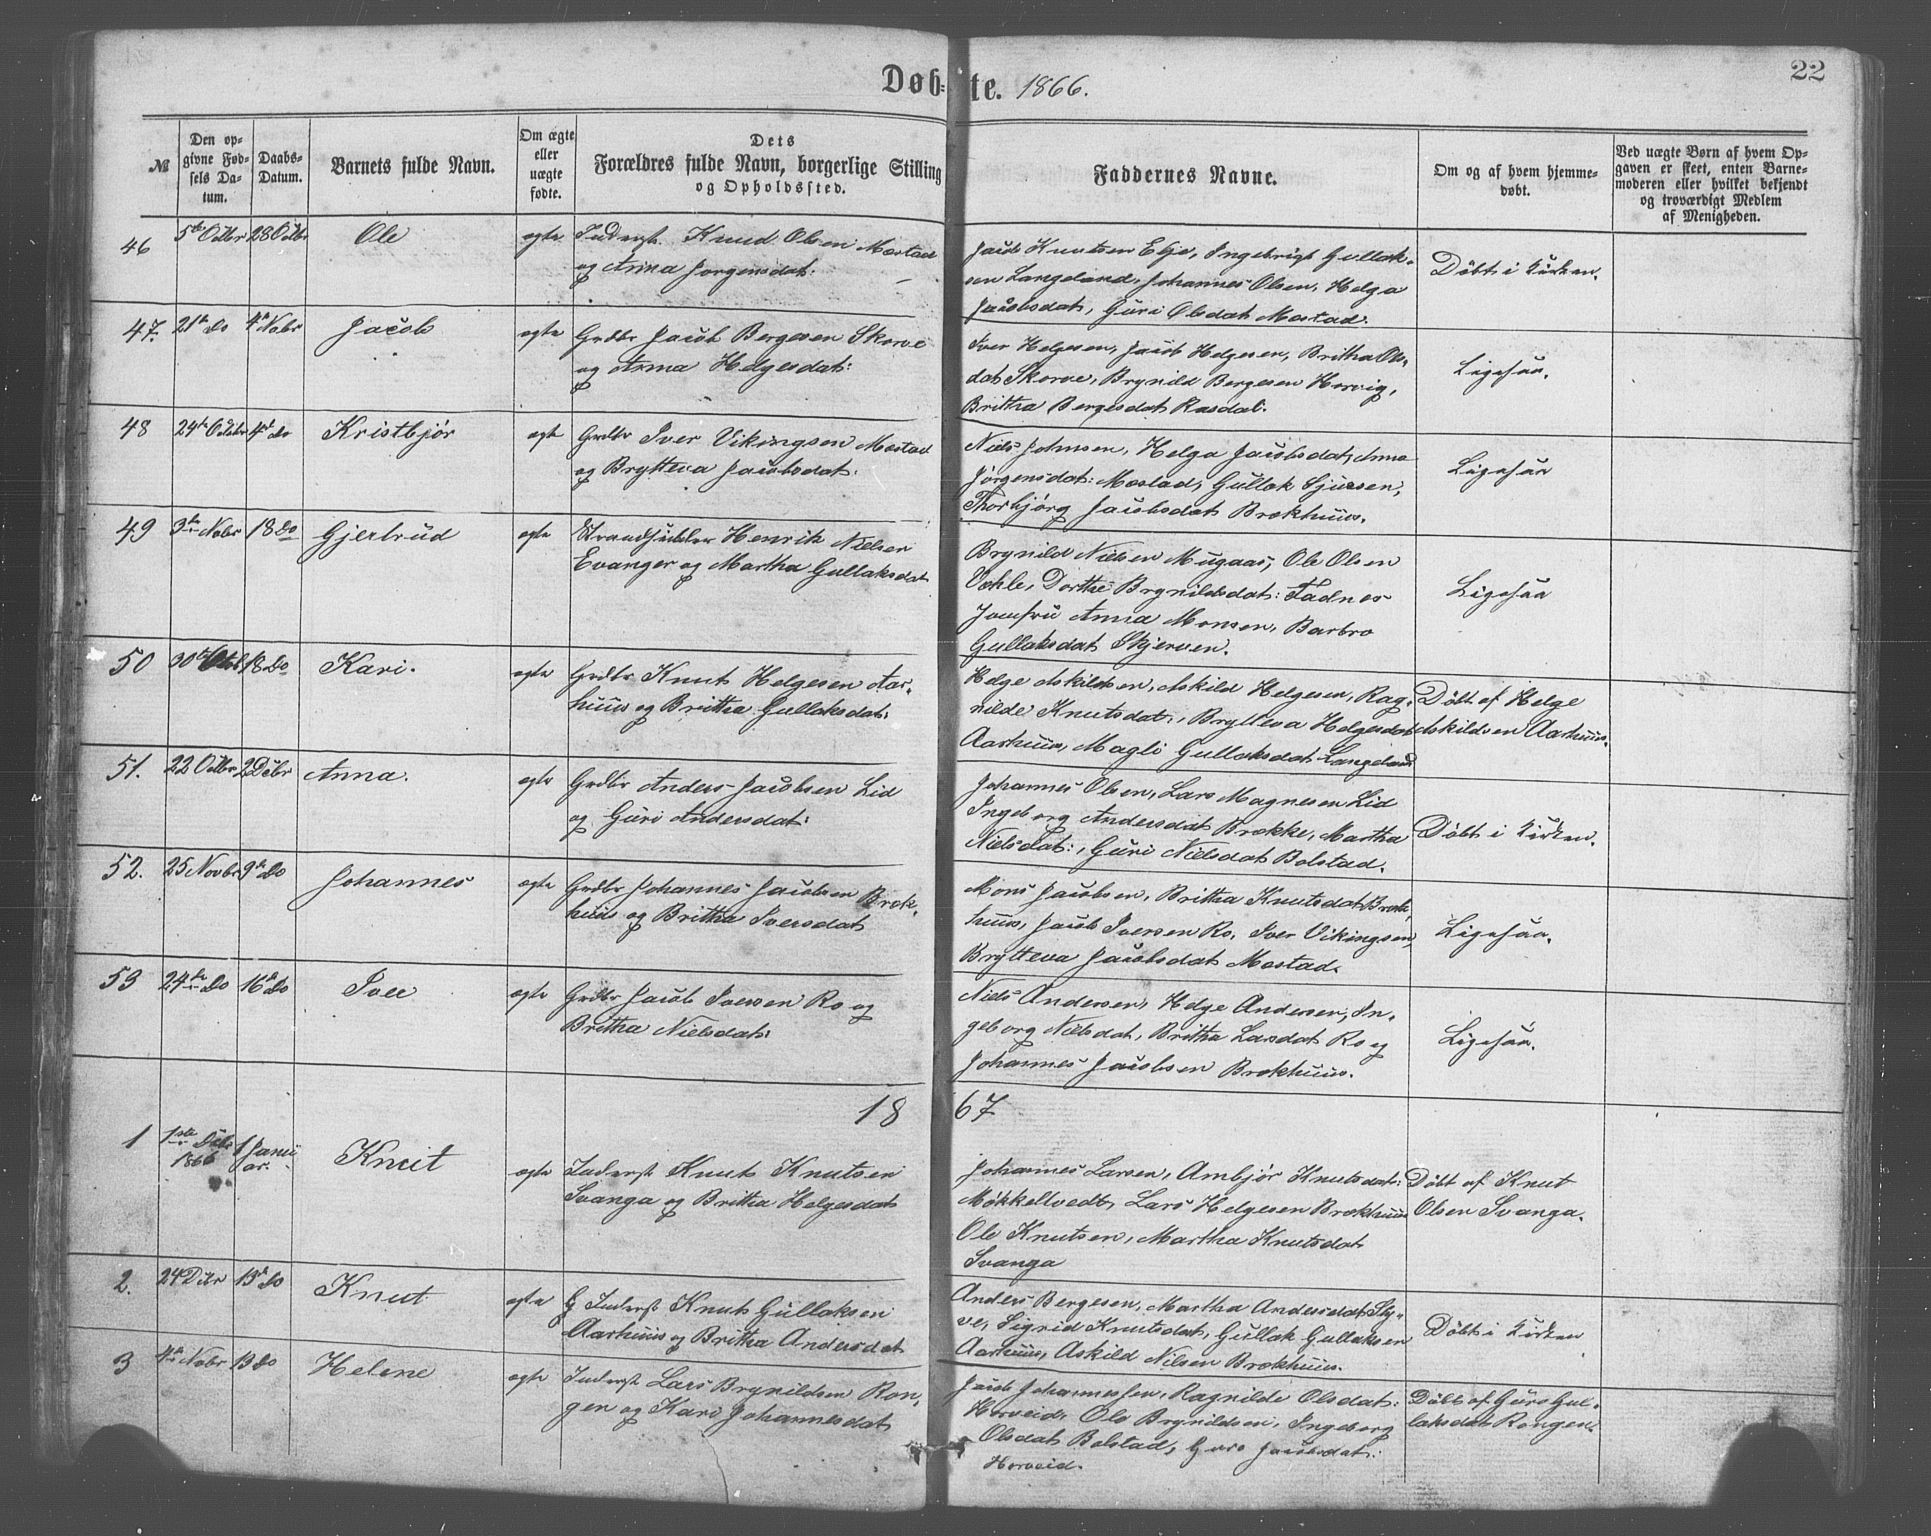 Døb-te. 1866.
22
№
Den op-
givne Fød-
sels Da-
tum.
Daabs-
Datum.
Barnets fulde Navn.
Om ægte
eller
uægte
fødte.
Dets
Forældres fulde Navn, borgerlige Stilling
og Opholdssted.
Faddernes Navne.
Om og af hvem hjemme-
døbt.
Ved uægte Børn af hvem Op-
gaven er skeet, enten Barne-
moderen eller hvilket bekjendt
og troværdigt Medlem
af Menigheden.
46 5te Octbr 28 Octbr Ole ægte Inderst. Knud Olsen Mæstad
og Anna Jørgensdat:
Jacob Knutsen Elje, Ingebrigt Gullak-
sen Langeland, Johannes Olsen, Helga
Jacobsdat, Guri Olsdat Mæstad.
Döbt i Kirken.
47. 21de do 4de Nobr Jacob ægte Grdbr Jacob Bergesen Skorve
og Anna Helgesdat:
Iver Helgesen, Jacob Helgesen, Britha Ols-
dat Skorve, Brynild Bergesen Horvig,
Britha Bergesdat Rasdal.
Ligesaa.
48 24de Octbr 4de do Kristbjör ægte Grdbr Iver Vikingsen Mæstad
og Brytteva Jacobsdat:
Niels Johnsen, Helga Jacobsdat, Anna
Jörgensdat: Mæstad, Gullak Sjursen,
Thorbjörg Jacobsdat Brækhuus.
Ligesaa
49 3de Nobr 18 do Gjertrud ægte Strandsidder Henrik Nielsen
Evanger og Martha Gullaksdat
Brynild Nielsen Mugaas, Ole Olsen
Vækle, Dorthe Brynildsdat: Fadnes
Jomfru Anna Monsen, Barbro
Gullaksdat Skjerven.
Ligesaa
50 30te Octbr 18 do Kari. ægte Grdbr Knut Helgesen Aar-
huus og Britha Gullaksdat:
Helge Askildsen, Askild Helgesen, Rag-
nilde Knutsdat:, Brytteva Helgesdat
Aarhuus, Magli Gullaksdat Langeland
Döbt af Helge
Askildsen Aarhuus.
51. 22 Octbr 2 Decbr Anna. ægte Grdbr Anders Jacobsen Lid
og Guri Andersdat:
Johannes Olsen, Lars Magnesen Lid
Ingeborg Andersdat Brække, Martha
Nielsdat:, Guri Nielsdat Bolstad.
Döbt i Kirken.
52. 25 Novbr 9de do Johannes ægte Grdbr Johannes Jacobsen Bræk-
huus og Britha Iversdat
Mons Jacobsen, Britha Knutsdat Bræk-
huus, Jacob Iversen Ro, Iver Vikingsen,
Brytteva Jacobsdat Mæstad.
Ligesaa.
53 24de do 16 do Iver ægte Grdbr Jacob Iversen Ro og
Britha Nielsdat:
Niels Andersen, Helge Andersen, In-
geborg Nielsdat, Britha Larsdat Ro og
Johannes Jacobsen Brækhuus.
Ligesaa.
1867
1 1ste Decbr 1866 1 Janu
ar. Knut ægte Inderst Knut Knutsen
Svanga og Britha Helgesdat
Johannes Larsen, Ambjör Knutsdat:
Møkkeltvedt, Lars Helgesen Brækhuus
Ole Knutsen, Martha Knutsdat
Svanga
Döbt af Knut
Olsen Svanga.
2. 24 Decbr 13de do Knut ægte G Inderst Knut Gullaksen
Aarhuus og Britha Andersdat
Anders Bergesen, Martha Andersdat Sty-
ve, Sigrid Knutsdat, Gullak Gullaksen
Aarhuus, Askild Nilsen Brækhuus.
Döbt i Kirken
3 4de Nobr 13 do Helene ægte Inderst Lars Brynildsen Ron-
gen og Kari Johannesdat
Jacob Johannessen, Ragnilde Olsdat:
Horveid, Ole Brynildsen, Ingeborg
Olsdat Bolstad, Guro Jacobsdat:
Horveid.
Döbt af Guro Gul-
laksdat Rongen.